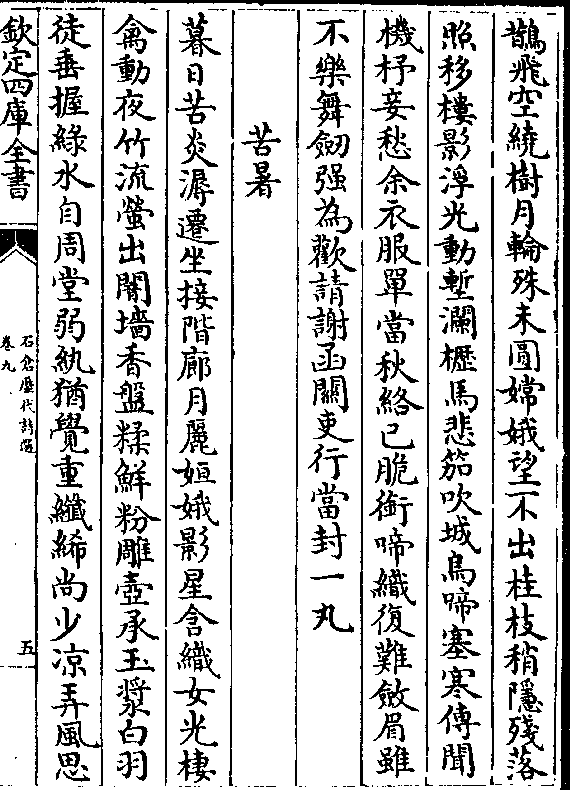 鵲飛空繞樹月輪殊未圓嫦娥望不出桂枝稍隱殘落
照移樓影浮光動塹瀾櫪馬悲笳吹城烏啼塞寒傳聞
機杼妾愁余衣服單當秋絡已脆銜啼織復難斂眉雖
不樂舞劒强為歡請謝函關吏行當封一丸
苦暑
暮日苦炎溽遷坐接階廊月麗姮娥影星含織女光棲
禽動夜竹流螢出闇墻香盤糅鮮粉雕壺承玉漿白羽
徒垂握緑水自周堂弱紈猶覺重纖絺尚少凉弄風思
欽定四庫全書
石倉歷代詩選
卷九
五